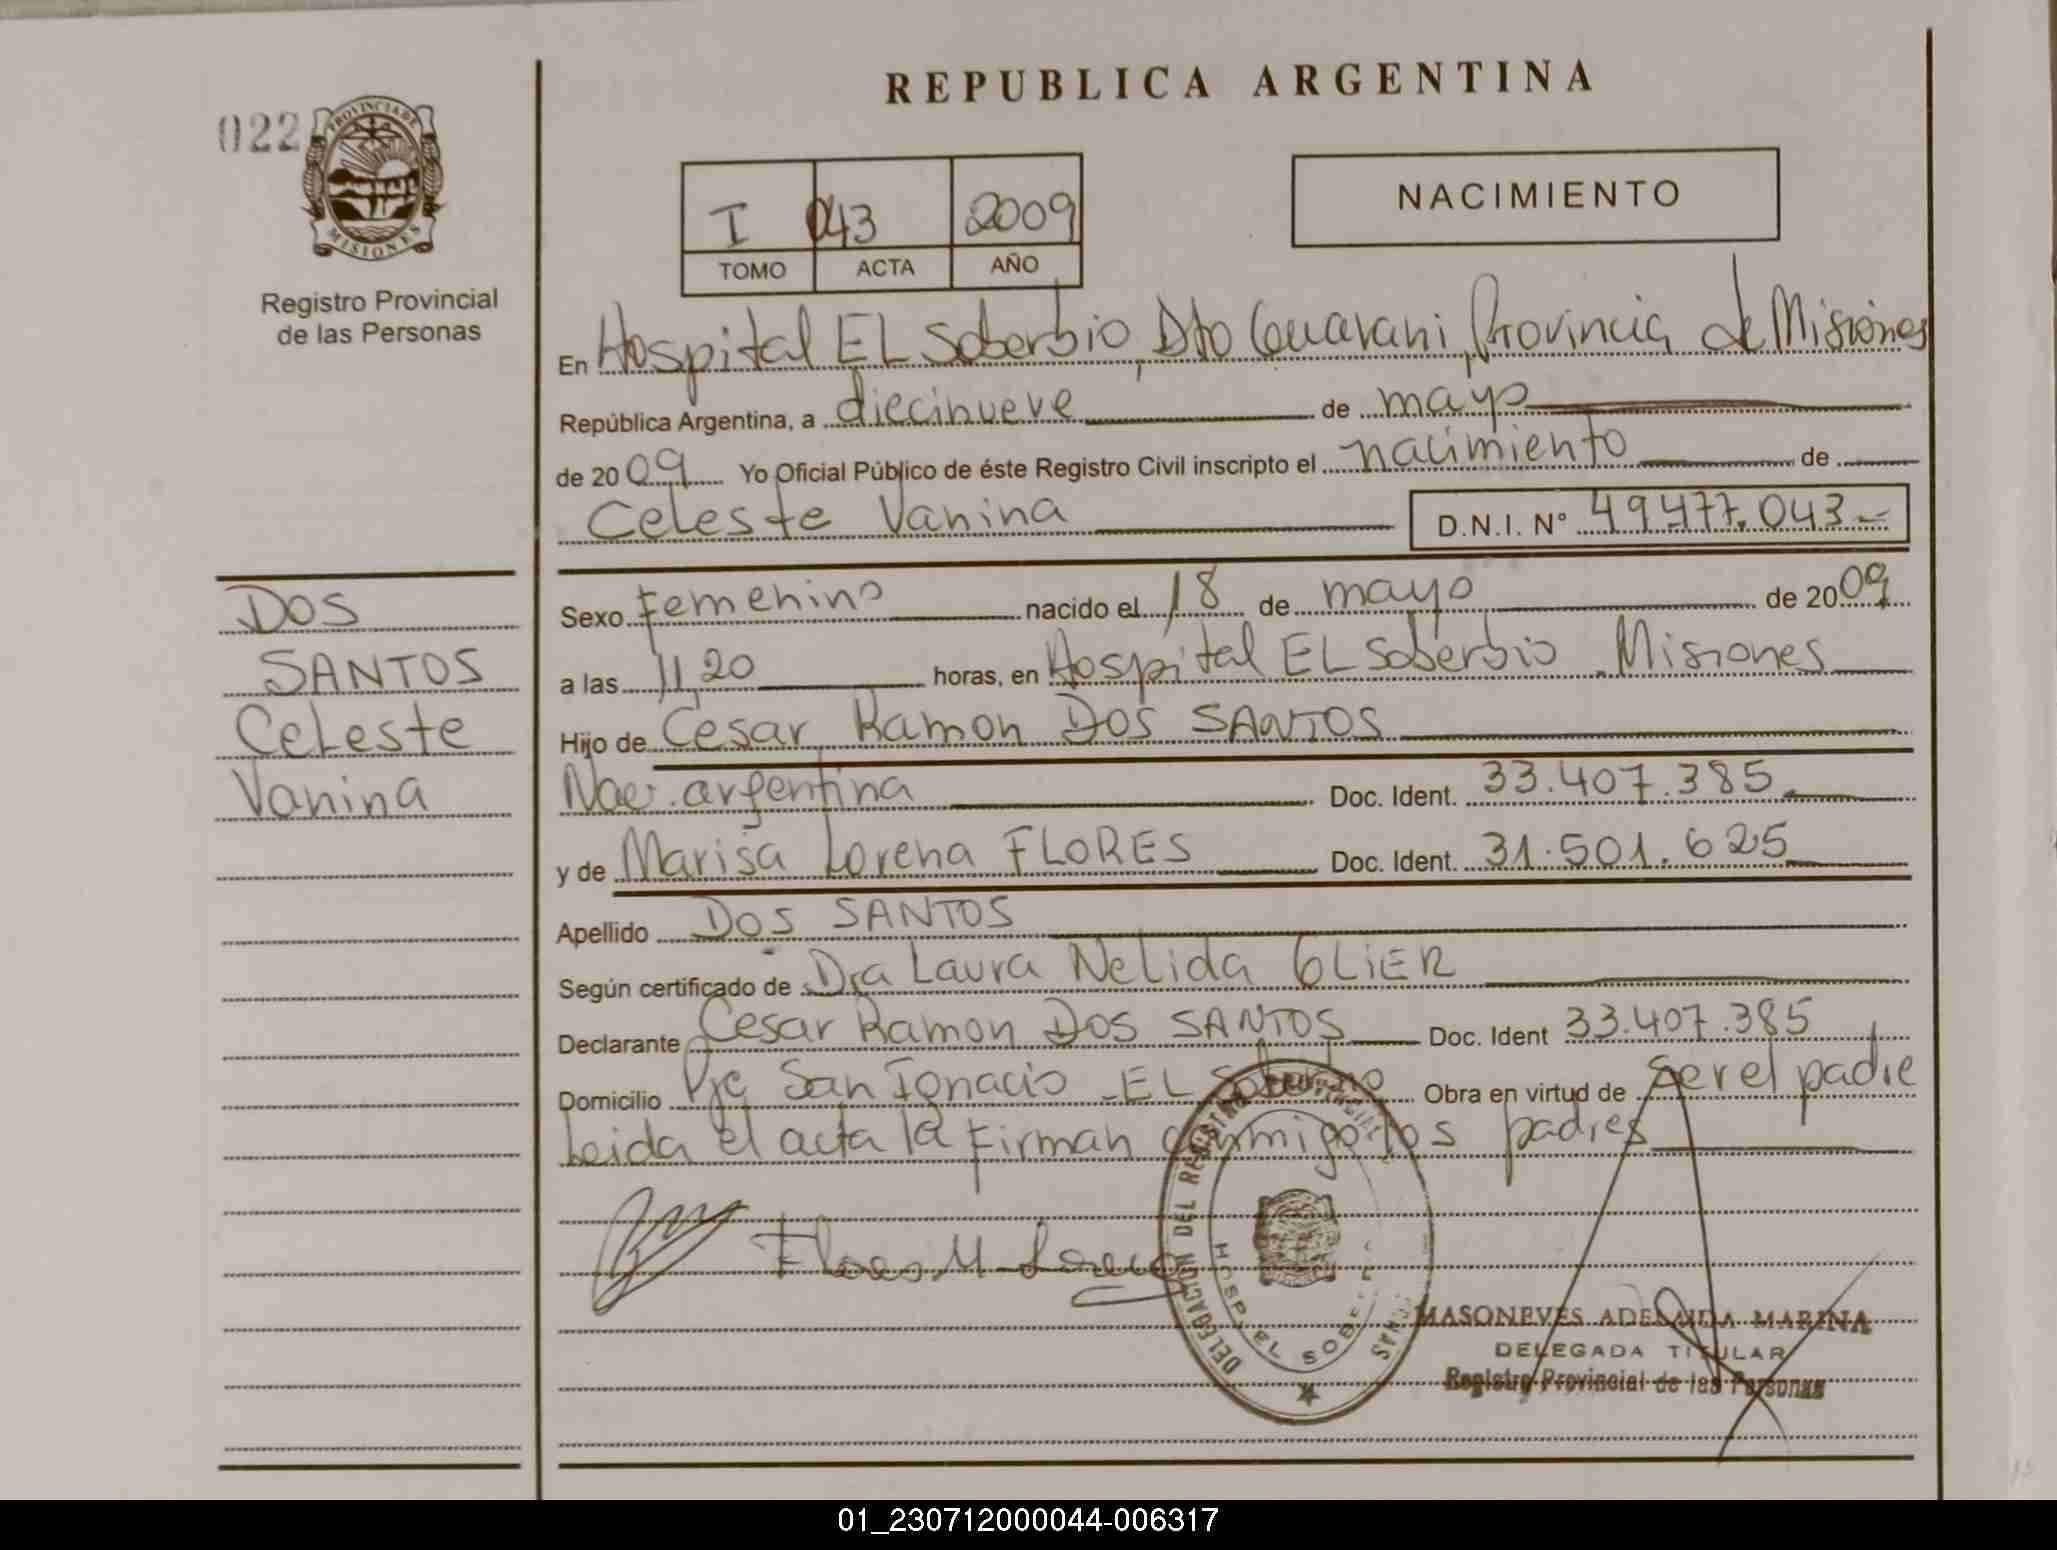 REPUBLICA ARGENTINA
022
PROVINCIA DE
MISIONES
Registro Provincial
de las Personas
I 043 2009
TOMO ACTA AÑO
NACIMIENTO
En Hospital EL Soberbio, Dto Guarani, Provincia de Misiones
República Argentina, a diecinueve de mayo
de 2009 Yo Oficial Público de éste Registro Civil inscripto el nacimiento de
Celeste Vanina D.N.I. Nº 49.477.043.-
DOS
SANTOS
Celeste
Vanina
Sexo Femenino nacido el 18 de mayo de 2009
a las 11,20 horas, en Hospital EL Soberbio. Misiones
Hijo de Cesar Ramon DOS SANTOS
Nac. argentina Doc. Ident. 33.407.385.
y de Marisa Lorena FLORES Doc. Ident. 31.501.625
Apellido DOS SANTOS
Según certificado de Dra Laura Nelida GLIER
Declarante Cesar Ramon DOS SANTOS Doc. Ident 33.407.385
Domicilio Pje San Ignacio - EL Soberbio Obra en virtud de ser el padre
Leida el acta la firman conmigo los padres
Flores M Lorena
DELEGACION DEL REGISTRO PROVINCIAL
HOSP. EL SOBER
MASONEVES ADELAIDA MARINA
DELEGADA TITULAR
Registro Provincial de las Personas
01_230712000044-006317